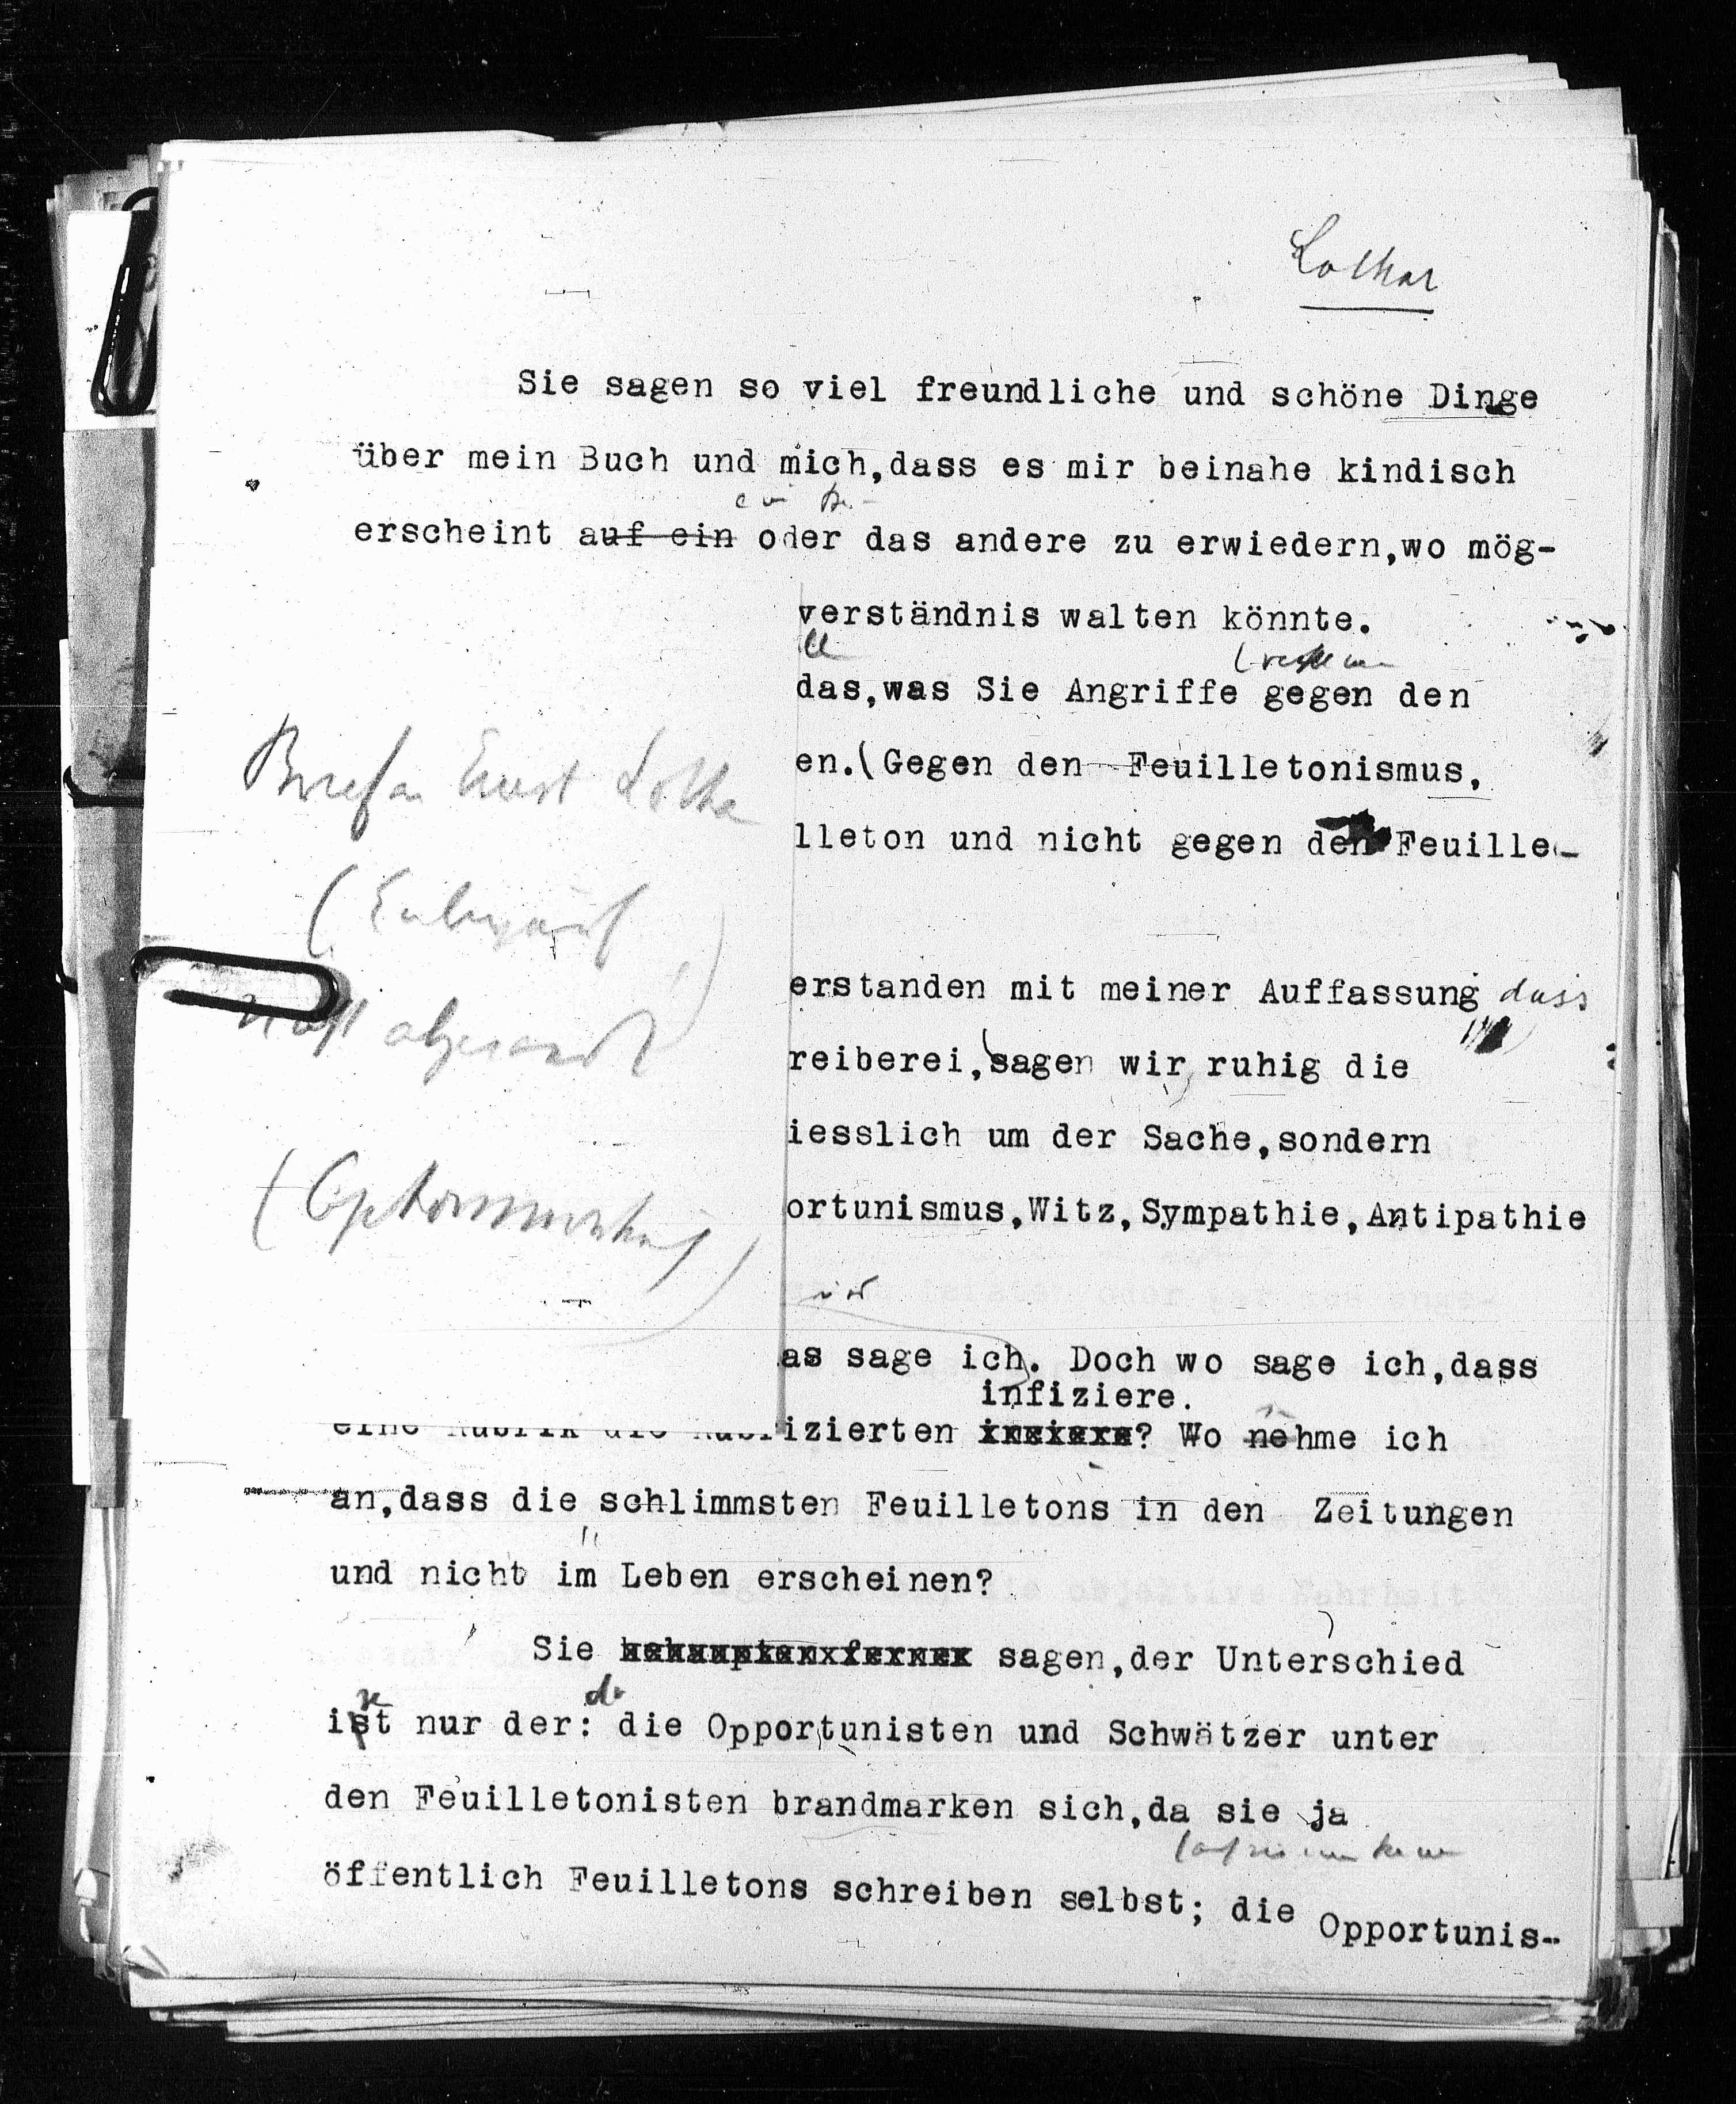 Lothar
Sie sagen so viel freundliche und schöne Dinge
über mein Buch und mich,dass es mir beinahe kindisch
erscheint auf ein oder das andere zu erwiedern,wo mög-
verständnis walten könnte.
das,was Sie Angriffe gegen den
en.(Gegen den Feuilletonismus,
lleton und nicht gegen den Feuille-
erstanden mit meiner Auffassung dass
reiberei,sagen wir ruhig die
iesslich um der Sache,sondern
ortunismus,Witz,Sympathie,Antipathie
as sage ich. Doch wo sage ich,dass
infiziere.
eine Rubrik die izierten ? Wo nehme ich
an,dass die schlimmsten Feuilletons in den Zeitungen
und nicht im Leben erscheinen?
Sie behaupten ferner sagen,der Unterschied
ist nur der: die Opportunisten und Schwätzer unter
den Feuilletonisten brandmarken sich,da sie ja
öffentlich Feuilletons schreiben selbst; die Opportunis-
Brief an Ernst Lothar
(Entwurf
nicht abgesandt